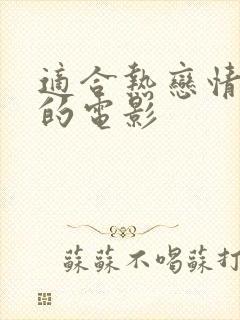 適合熱戀情
的電影
蘇蘇不喝蘇打